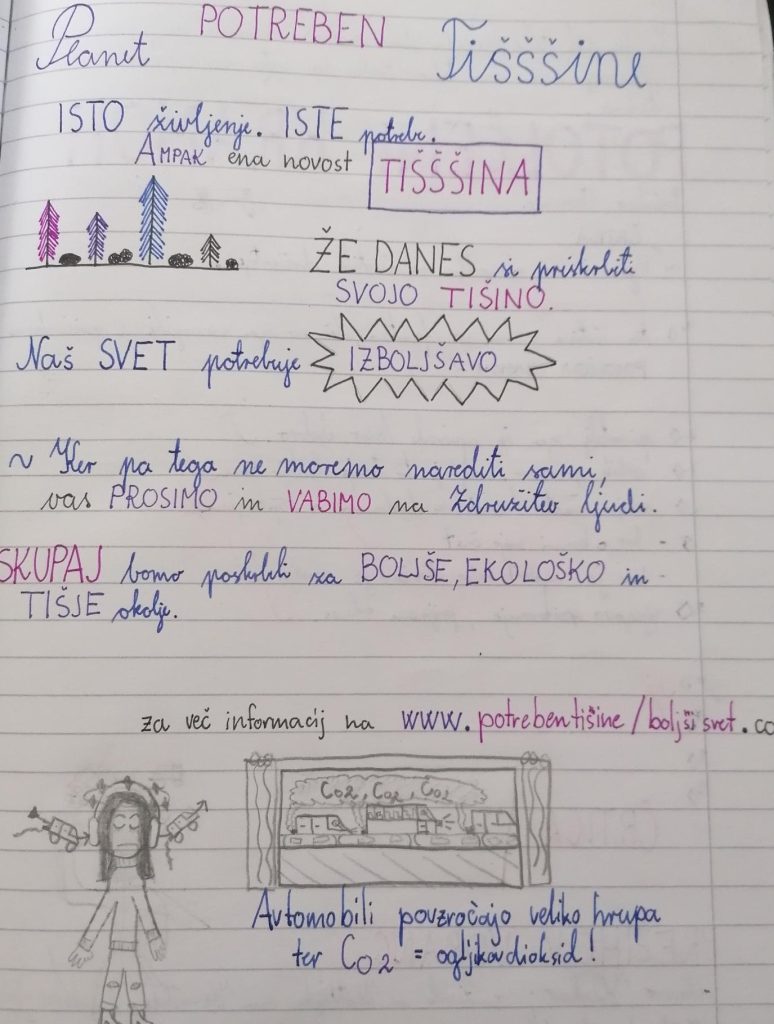 Planet POTREBEN Tišššine
ISTO življenje. ISTE potrebe.
AMPAK ena novost TIŠŠŠINA
ŽE DANES si priskrbiti
SVOJO TIŠINO.
Naš SVET potrebuje IZBOLJŠAVO
~ Ker pa tega ne moremo narediti sami,
vas PROSIMO in VABIMO na Združitev ljudi.
SKUPAJ bomo poskrbeli za BOLJŠE, EKOLOŠKO in
TIŠJE okolje.
za več informacij na www.potrebentišine/boljši svet.co
CO2, CO2, CO2
Avtomobili povzročajo veliko hrupa
ter CO2 = ogljikov dioksid!